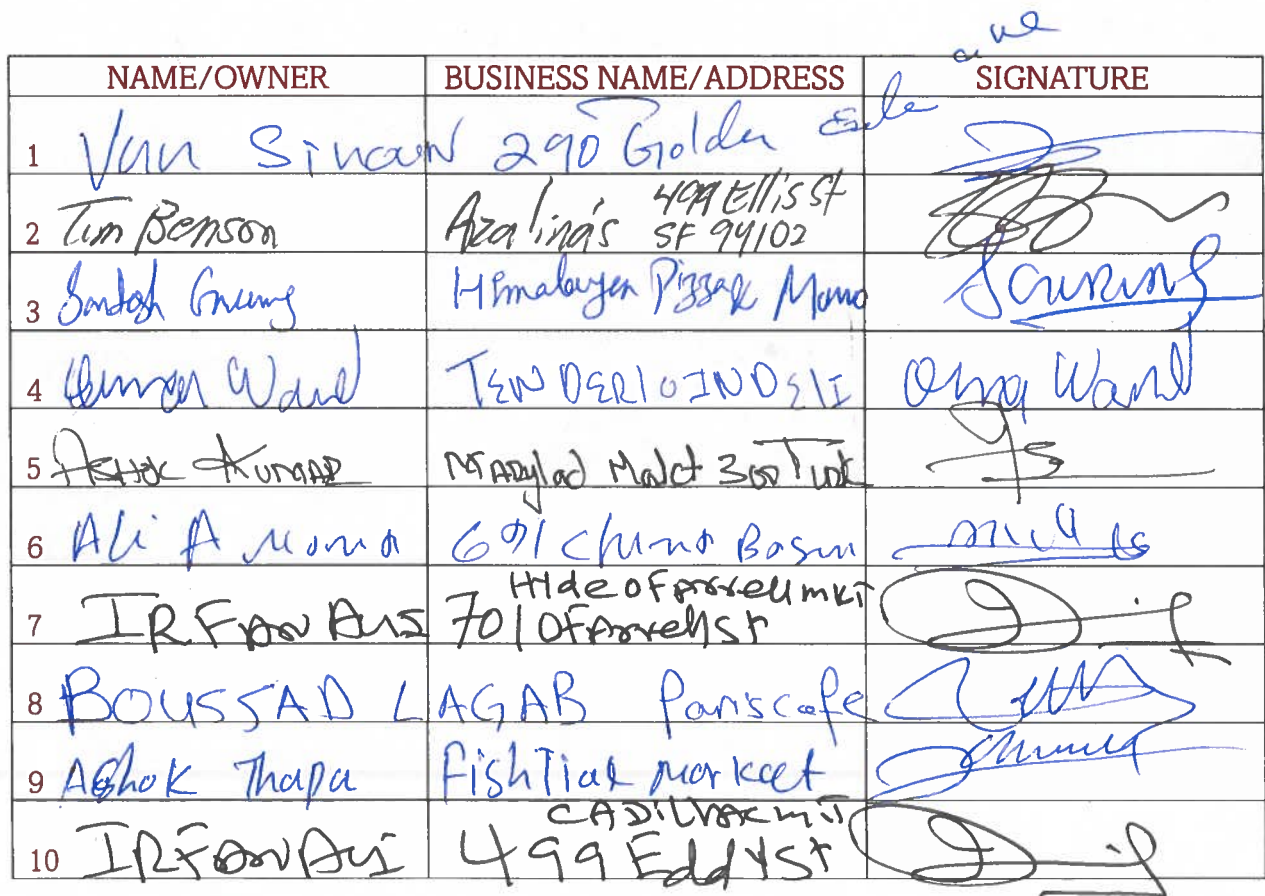 NAME/OWNER BUSINESS NAME/ADDRESS SIGNATURE
1 Van 290 Golden Gate ave
2 Tim Benson Azalina's 499 Ellis St
SF 94102
3 Santosh Gurung Himalayan Pizza & Momo
4 Ward TENDERLOIN DELI Ward
5 ASHOK KUMAR 300 Turk
6 Ali A 691 China Basin
7 IRFAN ALI Hide ofarrell mkt
701 Ofarrell St
8 BOUSSAD LAGAB Pariscafe
9 Ashok Thapa Fish Tial markeet
10 IRFAN ALI CADILLAC mkt
499 Eddy St